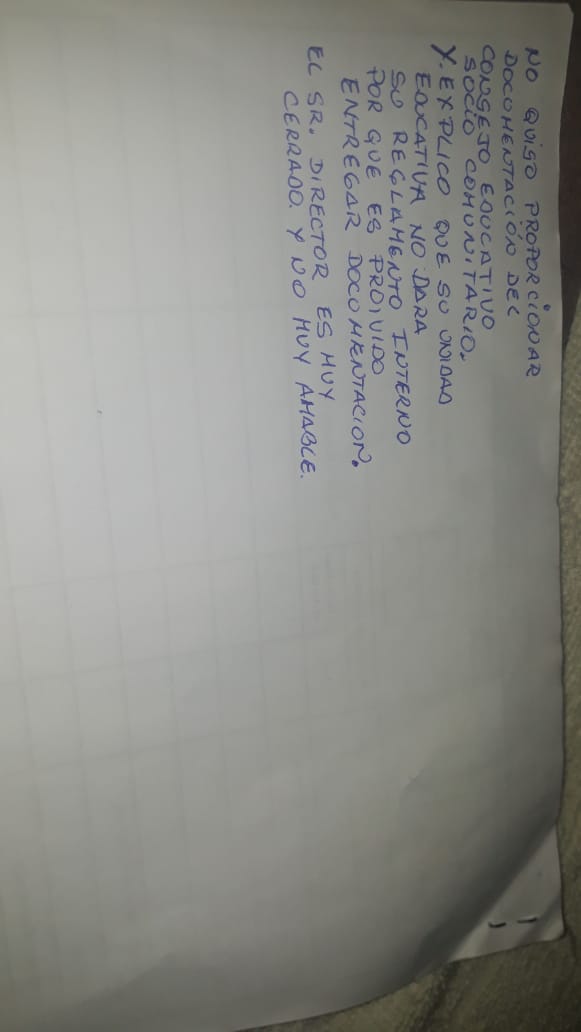 NO QUISO PROPORCIONAR
DOCUMENTACIÓN DEL
CONSEJO EDUCATIVO
SOCIO COMUNITARIO.
Y. EXPLICO QUE SU UNIDAD
EDUCATIVA NO DARA
SU REGLAMENTO INTERNO
POR QUE ES PROIVIDO
ENTREGAR DOCUMENTACION.
EL SR. DIRECTOR ES MUY
CERRADO Y NO MUY AMABLE.